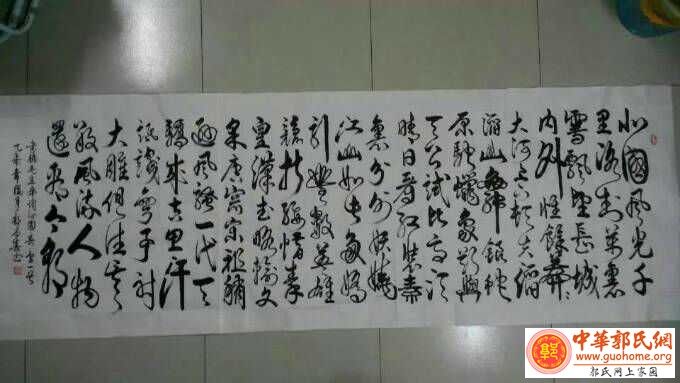 北國風光千
里冰封萬里
雪飄望長城
内外惟餘莽々
大河上下頓失滔
滔山舞銀蛇
原馳蠟象欲與
天公試比高須
晴日看紅裝素
裹分外妖嬈
江山如此多嬌
引無數英雄
競折腰惜秦
皇漢武略輸文
采唐宗宋祖稍
遜風騷一代天
驕成吉思汗
只識彎弓射
大雕俱往矣
數風流人物
還看今朝
主席詞沁園春雪一首
乙未年
中華郭氏網
www.guohome.org
郭氏网上家園